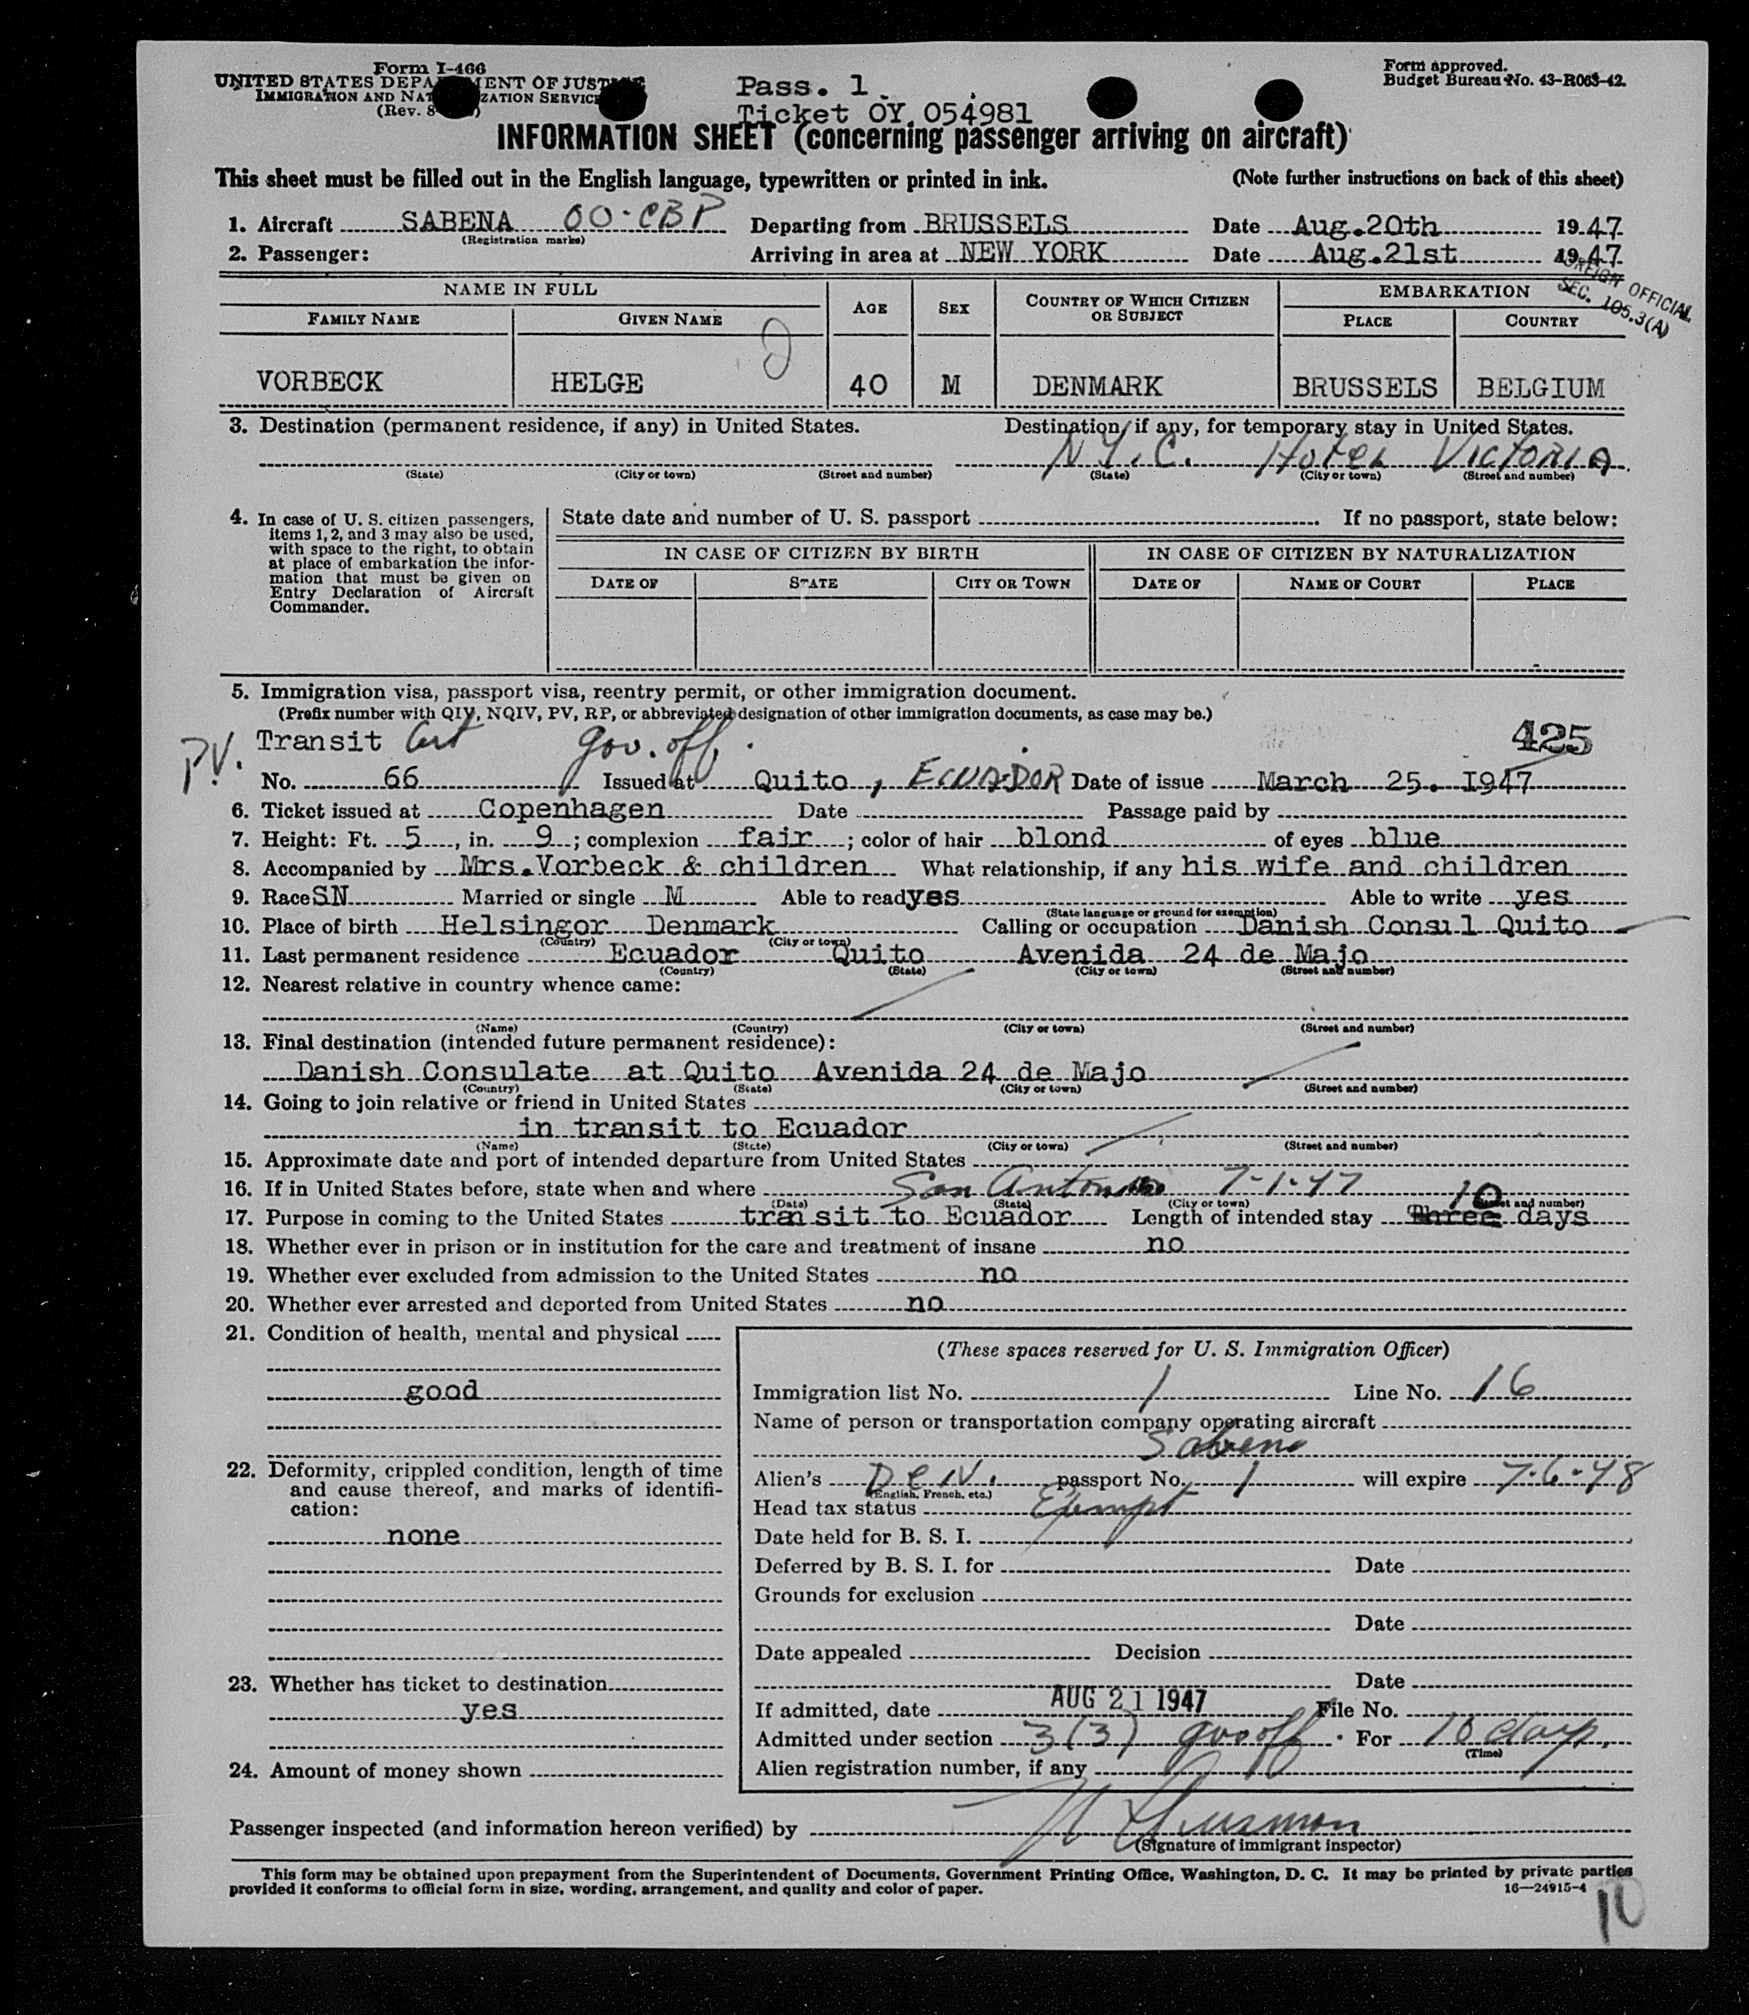 Form I-466
UNITED STATES DEPA MENT OF JUST
IMMIGRATION AND NAT ZATION SERVICE
(Rev. 8 )
Pass. 1
Ticket OY 054981
Form approved.
Budget Bureau No. 43-R063-42.
INFORMATION SHEET (concerning passenger arriving on aircraft)
This sheet must be filled out in the English language, typewritten or printed in ink. (Note further instructions on back of this sheet)
1. Aircraft SABENA OO-CBP Departing from BRUSSELS Date Aug.20th 1947
(Registration marks)
2. Passenger: Arriving in area at NEW YORK Date Aug.21st 1947
FOREIGN OFFICIAL
SEC. 105.3(A)
NAME IN FULL AGE SEX COUNTRY OF WHICH CITIZEN OR SUBJECT EMBARKATION
FAMILY NAME GIVEN NAME PLACE COUNTRY
VORBECK HELGE 40 M DENMARK BRUSSELS BELGIUM
3. Destination (permanent residence, if any) in United States. Destination, if any, for temporary stay in United States.
N.Y.C. Hotel VICTORIA
(State) (City or town) (Street and number) (State) (City or town) (Street and number)
4. In case of U. S. citizen passengers, items 1, 2, and 3 may also be used, with space to the right, to obtain at place of embarkation the information that must be given on Entry Declaration of Aircraft Commander.
State date and number of U. S. passport . If no passport, state below:
IN CASE OF CITIZEN BY BIRTH IN CASE OF CITIZEN BY NATURALIZATION
DATE OF STATE CITY OR TOWN DATE OF NAME OF COURT PLACE
5. Immigration visa, passport visa, reentry permit, or other immigration document.
(Prefix number with QIV, NQIV, PV, RP, or abbreviated designation of other immigration documents, as case may be.)
P.V. Transit Cert gov. off. 425
No. 66 Issued at Quito, ECUADOR Date of issue March 25. 1947
6. Ticket issued at Copenhagen Date Passage paid by
7. Height: Ft. 5, in. 9; complexion fair; color of hair blond of eyes blue
8. Accompanied by Mrs.Vorbeck & children What relationship, if any his wife and children
9. Race SN Married or single M Able to read yes Able to write yes
(State language or ground for exemption)
10. Place of birth Helsingor Denmark Calling or occupation Danish Consul Quito
(Country) (City or town)
11. Last permanent residence Ecuador Quito Avenida 24 de Majo
(Country) (State) (City or town) (Street and number)
12. Nearest relative in country whence came:
(Name) (Country) (City or town) (Street and number)
13. Final destination (intended future permanent residence):
Danish Consulate at Quito Avenida 24 de Majo
(Country) (State) (City or town) (Street and number)
14. Going to join relative or friend in United States
in transit to Ecuador
(Name) (State) (City or town) (Street and number)
15. Approximate date and port of intended departure from United States
16. If in United States before, state when and where San Antonio 7-1-47
(Date) (State) (City or town) (Street and number)
17. Purpose in coming to the United States transit to Ecuador Length of intended stay Three 10 days
18. Whether ever in prison or in institution for the care and treatment of insane no
19. Whether ever excluded from admission to the United States no
20. Whether ever arrested and deported from United States no
21. Condition of health, mental and physical
good
22. Deformity, crippled condition, length of time and cause thereof, and marks of identification:
none
23. Whether has ticket to destination
yes
24. Amount of money shown
(These spaces reserved for U. S. Immigration Officer)
Immigration list No. 1 Line No. 16
Name of person or transportation company operating aircraft
Sabena
Alien's Den. passport No. 1 will expire 7-6-48
(English, French, etc.)
Head tax status Exempt
Date held for B. S. I.
Deferred by B. S. I. for Date
Grounds for exclusion
Date
Date appealed Decision
Date
If admitted, date AUG 21 1947 File No.
Admitted under section 3(3) gov off. For 10 days
(Time)
Alien registration number, if any
Passenger inspected (and information hereon verified) by
(Signature of immigrant inspector)
This form may be obtained upon prepayment from the Superintendent of Documents, Government Printing Office, Washington, D. C. It may be printed by private parties
provided it conforms to official form in size, wording, arrangement, and quality and color of paper. 16—24915-4
10